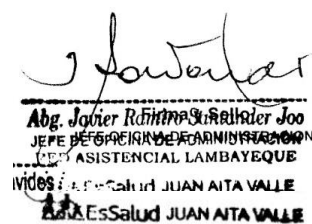 Abg. Javier Ramiro Santander Joo
Firma y Sello
JEFE DE OFICINA DE ADMINISTRACION
JEFE OFICINA DE ADMINISTRACION
RED ASISTENCIAL LAMBAYEQUE
EsSalud JUAN AITA VALLE
EsSalud JUAN AITA VALLE